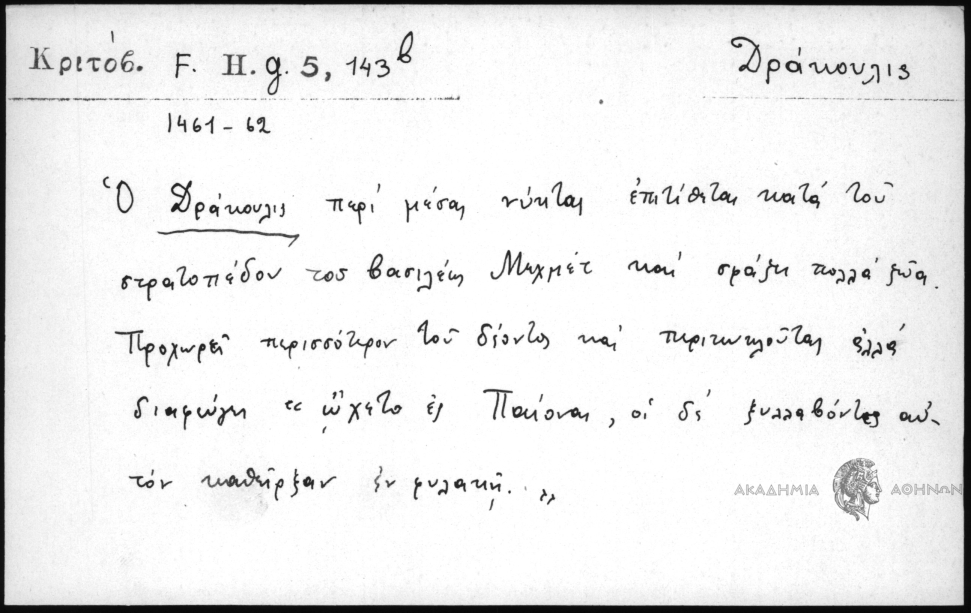 Κριτόβ. F. H. g. 5, 143β Δράκουλις
1461 - 62
Ὁ Δράκουλις περὶ μέσας νύκτας ἐπιτίθεται κατὰ τοῦ
στρατοπέδου τοῦ βασιλέως Μεχμὲτ καὶ σφάζει πολλὰ ζῶα.
Προχωρεῖ περισσότερον τοῦ δέοντος καὶ περικυκλοῦται ἀλλὰ
διαφεύγει « ᾤχετο ἐς Παίονας, οἱ δὲ ξυλλαβόντες αὐ-
τὸν καθεῖρξαν ἐν φυλακῇ. »
ΑΚΑΔΗΜΙΑ ΑΘΗΝΩΝ